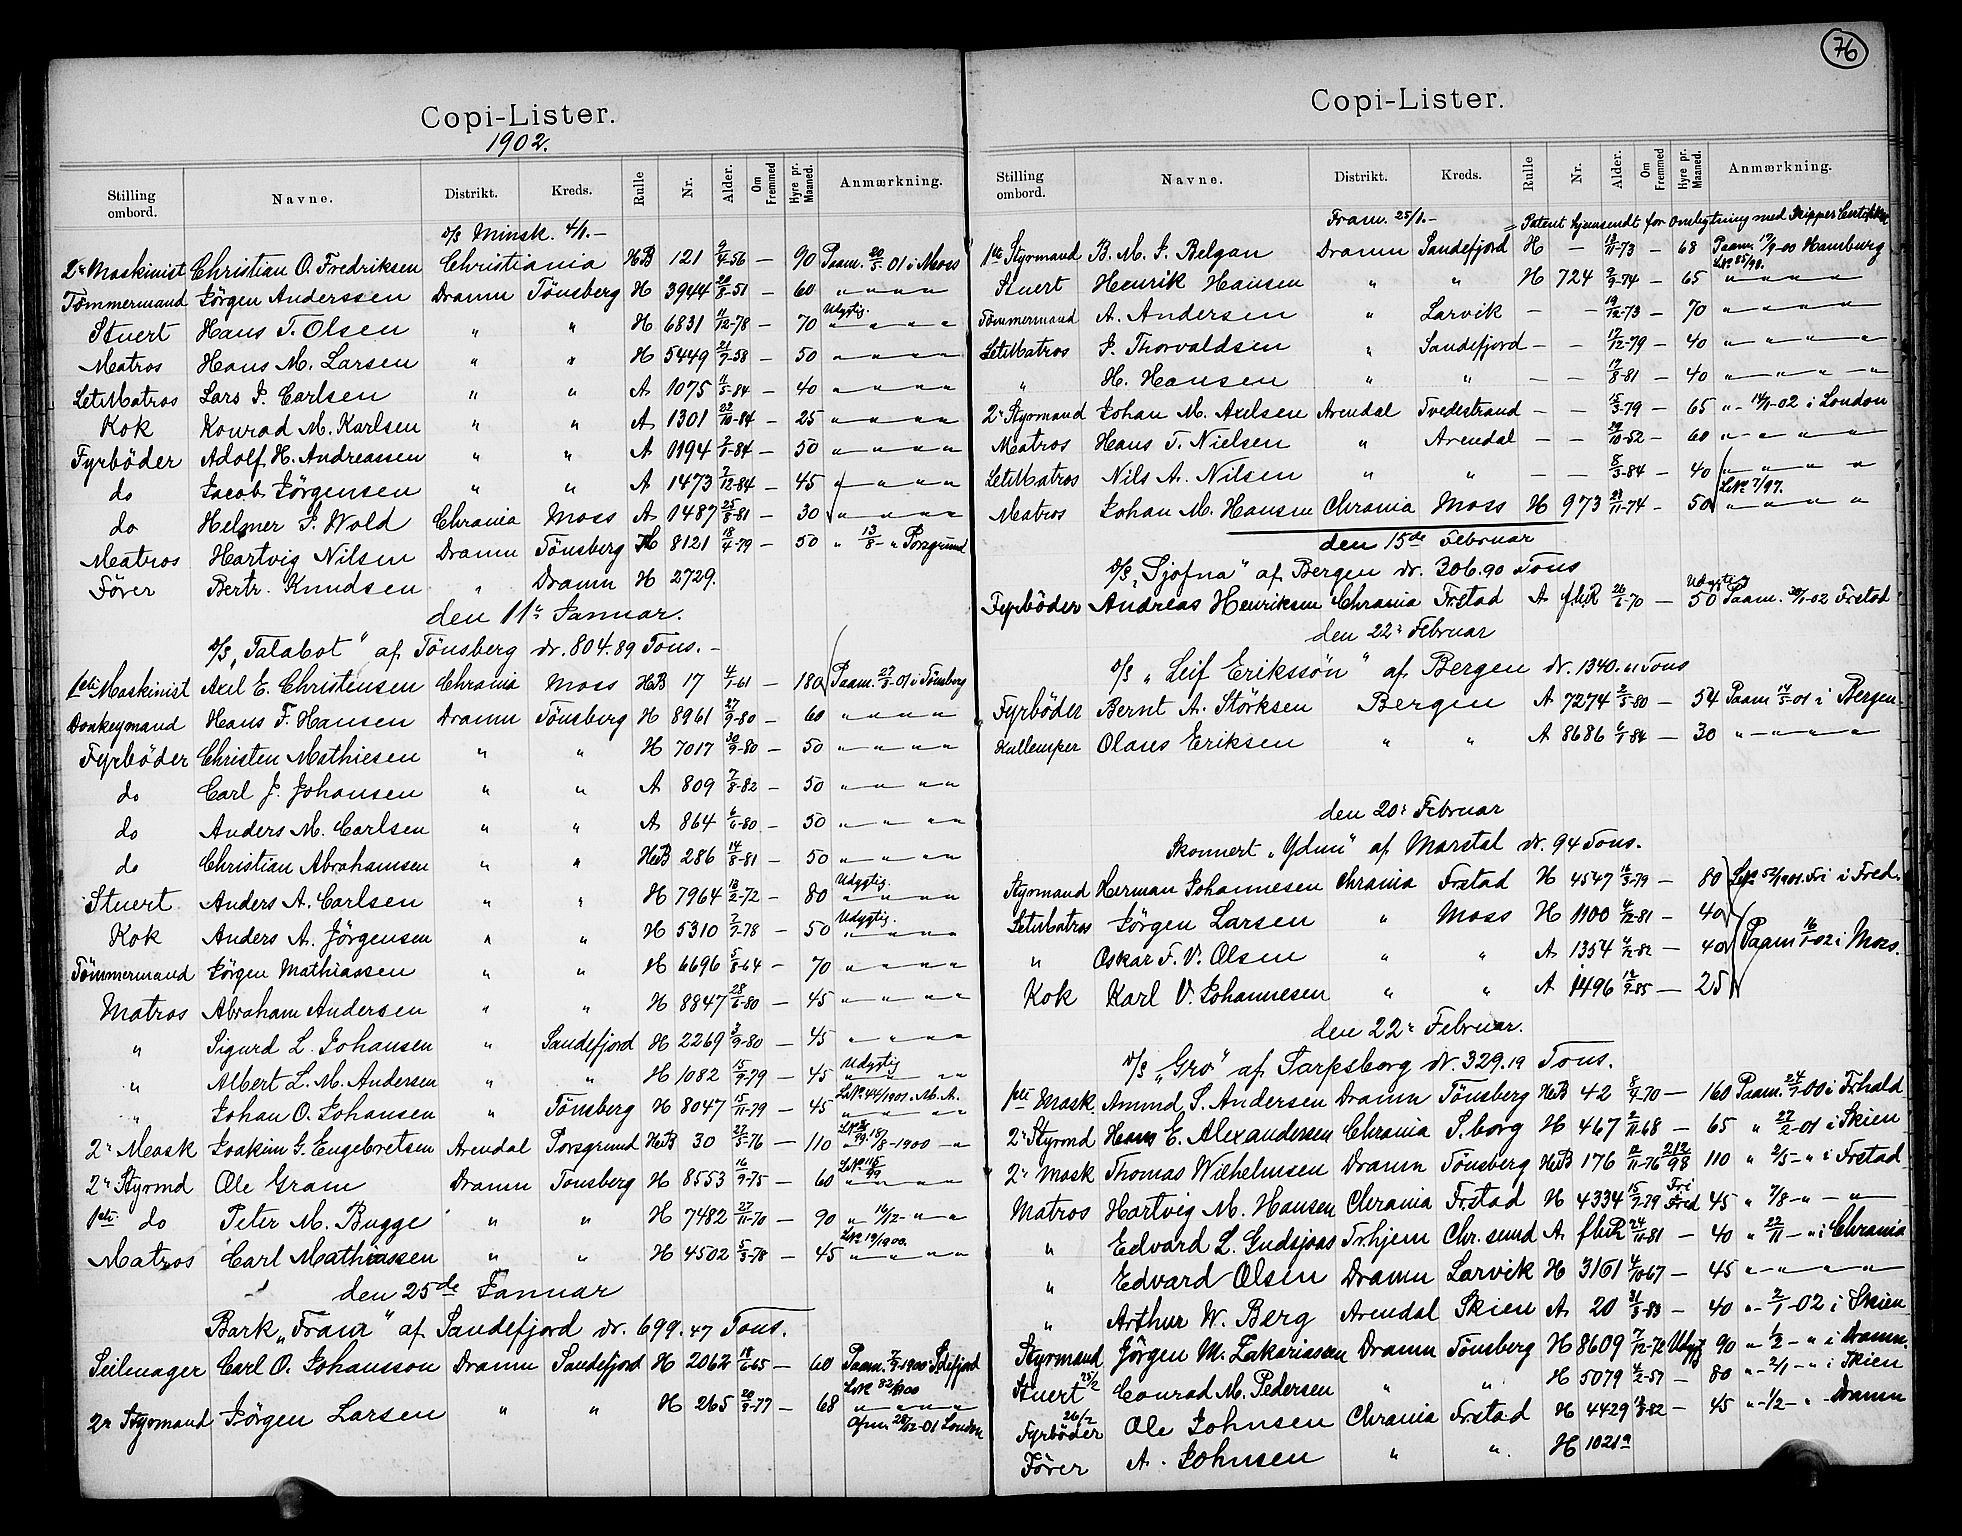 Copi-Lister.
1902.
Stilling ombord. Navne. Distrikt. Kreds. Rulle Nr. Alder. Om Fremmed Hyre pr. Maaned. Anmærkning.
D/S Minsk. 4/1.-
2n Maskinist Christian O. Fredriksen Christiania HB 121 2/4-56 — 90 Paam. 20/5-01 i Moss
Tømmermand Jørgen Anderssen Dramn Tönsberg H 3944 20/8-51 — 60 " " " "
Stuert Hans T. Olsen " " H 6831 11/12-78 — 70 Udygtig. " " " "
Matros Hans M. Larsen " " H 5449 21/7-58 — 50 " " " "
LetMatros Lars J. Carlsen " " A 1075 11/5-84 — 40 " " " "
Kok Konrad M. Karlsen " " A 1301 22/10-84 — 25 " " " "
Fyrböder Adolf H. Andreassen " " A 1194 2/8-84 — 50 " " " "
do Jacob Jörgensen " " A 1473 7/12-84 — 45 " " " "
do Helmer J. Wold Chrania Moss A 1487 25/8-81 — 30 " " " "
Matros Hartvig Nilsen Dramn Tönsberg H 8121 18/4-79 — 50 " 13/8 - " Porsgrund
Förer Bertr. Knudsen " Dramn H 2729.
den 11te Januar.
D/S „Talabot" af Tönsberg dr. 804.89 Tons. -
1ste Maskinist Axel E. Christensen Chrania Moss HB 17 4/1-61 — 180 Paam. 27/8-01 i Tönsberg
Donkeymand Hans F. Hansen Dramn Tönsberg H 8961 27/9-80 — 60 " " " "
Fyrböder Christen Mathiesen " " H 7017 30/9-80 — 50 " " " "
do Carl J. Johansen " " A 809 7/8-82 — 50 " " " "
do Anders M. Carlsen " " A 864 6/6-80 — 50 " " " "
do Christian Abrahamsen " " HB 286 14/8-81 — 50 " " " "
Stuert Anders A. Carlsen " " H 7964 18/2-72 — 80 Udygtig. " " " "
Kok Anders A. Jörgensen " " H 5310 7/7-78 — 50 Udygtig. " " " "
Tömmermand Jörgen Mathiassen " " H 6696 5/8-64 — 70 " " " "
Matros Abraham Andersen " " H 8847 28/6-80 — 45 " " " "
" Sigurd L. Johansen " Sandefjord H 2269 2/9-80 — 45 " " " "
" Albert L. M. Andersen " " H 1082 15/9-79 — 45 Udygtig " " " "
" Johan O. Johansen " Tönsberg H 8047 15/11-79 — 45 LNo 44/1901. M. A. " " " "
2n Mask Joakim G. Engebretsen Arendal Porsgrund HB 30 27/5-76 — 110 " 18/8-1900 - "
2n Styrmd Ole Gram Dramn Tonsberg H 8553 16/9-75 — 60 LNo 115/99 " " " "
1ste do Peter M. Bugge " " H 7482 27/11-70 — 90 " 16/12 - " "
Matros Carl Mathiassen " " H 4502 5/3-78 — 45 LNo 19/1900. " " " "
den 25de Januar
Bark „Fram" af Sandefjord dr. 699.47 Tons.
Seilmager Carl O. Johansson Dramn Sandefjord H 2062 18/6-65 — 60 Paam. 7/9-1900 Sdefjord
2n Styrmand Jörgen Larsen " " H 265 20/3-77 — 68 LNo 82/1900 " " " "
Afm. 28/12-01 London
76
Copi-Lister.
Stilling ombord. Navne. Distrikt. Kreds. Rulle Nr. Alder. Om Fremmed Hyre pr. Maaned. Anmærkning.
Fram. 25/1.- = Patent hjemsendt for Ombytning med Skipper Certifikat
1ste Styrmand B. M. J. Belgan Dramn Sandefjord H — 13/11-73 — 68 Paam. 17/9-00 Hamburg
Stuert Henrik Hansen " " H 724 2/9-74 — 65 LNo 85/98. " " " "
Tömmermand A. Andersen " Larvik — — 19/12-73 — 70 " " " "
LetMatros J. Thorvaldsen " Sandefjord — — 17/12-79 — 40 " " " "
" H. Hansen " " — — 17/8-81 — 40 " " " "
2n Styrmand Johan M. Axelsen Arendal Tvedestrand — — 15/3-79 — 65 " - 14/1-02 i London
Matros Hans T. Nielsen " Arendal — — 29/10-52 — 60 " " " "
LetMatros Nils A. Nilsen " " — — 8/3-84 — 40 " " " "
Matros Johan M. Hansen Chrania Moss H 973 28/11-74 — 50 LNo 7/97. " " " "
den 15de Februar
D/S „Sjofna" af Bergen dr. 306.90 Tons
Fyrböder Andreas Henriksen Chrania Frstad A fhiR 26/6-70 — 50 Udygtig Paam. 30/1-02 Frstad
den 22n Februar
D/S „Leif Erikssön" af Bergen dr. 1340.41 Tons
Fyrböder Bernt A. Störksen Bergen A 7274 2/5-80 — 54 Paam 14/5-01 i Bergen
Kullemper Olaus Eriksen " " A 8686 6/1-84 — 30 " " " "
den 20n Februar
Skonnert „Ydun" af Marstal dr. 94 Tons.
Styrmand Herman Johannesen Chrania Frstad H 4547 16/3-79 — 80 LNo 52/1901. Fri i Fred.
LetMatros Jörgen Larsen " Moss H 1100 4/12-81 — 40
" Oskar F. V. Olsen " " A 1354 4/2-82 — 40 Paam 16/1-02 i Moss.
Kok Karl V. Johannesen " " A 1496 12/9-85 — 25
den 22n Februar.
D/S „Gro" af Sarpsborg dr. 329.19 Tons.
1ste Mask Amund S. Andersen Dramn Tönsberg HB 42 8/4-70 — 160 Paam. 24/7-00 i Frhald
2n Styrmd Hans E. Alexandersen Chrania S.borg H 467 2/11-68 — 65 " 27/2-01 i Skien
2n Mask Thomas Wilhelmsen Dramn Tönsberg HB 176 12/11-76 212/98 110 " 2/5 - " i Frstad
Matros Hartvig M. Hansen Chrania Frstad H 4334 15/7-79 Fri Fred 45 " 7/8 - " - "
" Edvard L. Gudsjoas Trhjem Chr.sund A fhiR 24/11-81 — 40 " 22/11 - " i Chrania
" Edvard Olsen Dramn Larvik H 3161 4/10-67 — 45 " " " "
" Arthur W. Berg Arendal Skien A 20 31/3-83 — 40 " - 2/1-02 i Skien
Styrmand Jörgen M. Zakariassen Dramn Tönsberg H 8609 7/12-72 Udygt 90 " 1/2 - " i Dramn.
Stuert 25/2 Conrad M. Pedersen " " H 5079 4/2-57 — 80 " - 2/1 - " i Skien
Fyrböder 26/2 Ole Johnsen Chrania Frstad H 4429 12/8-82 — 45 " - 1/2 - " - Dramn
Förer A. Johnsen " " H 1021a